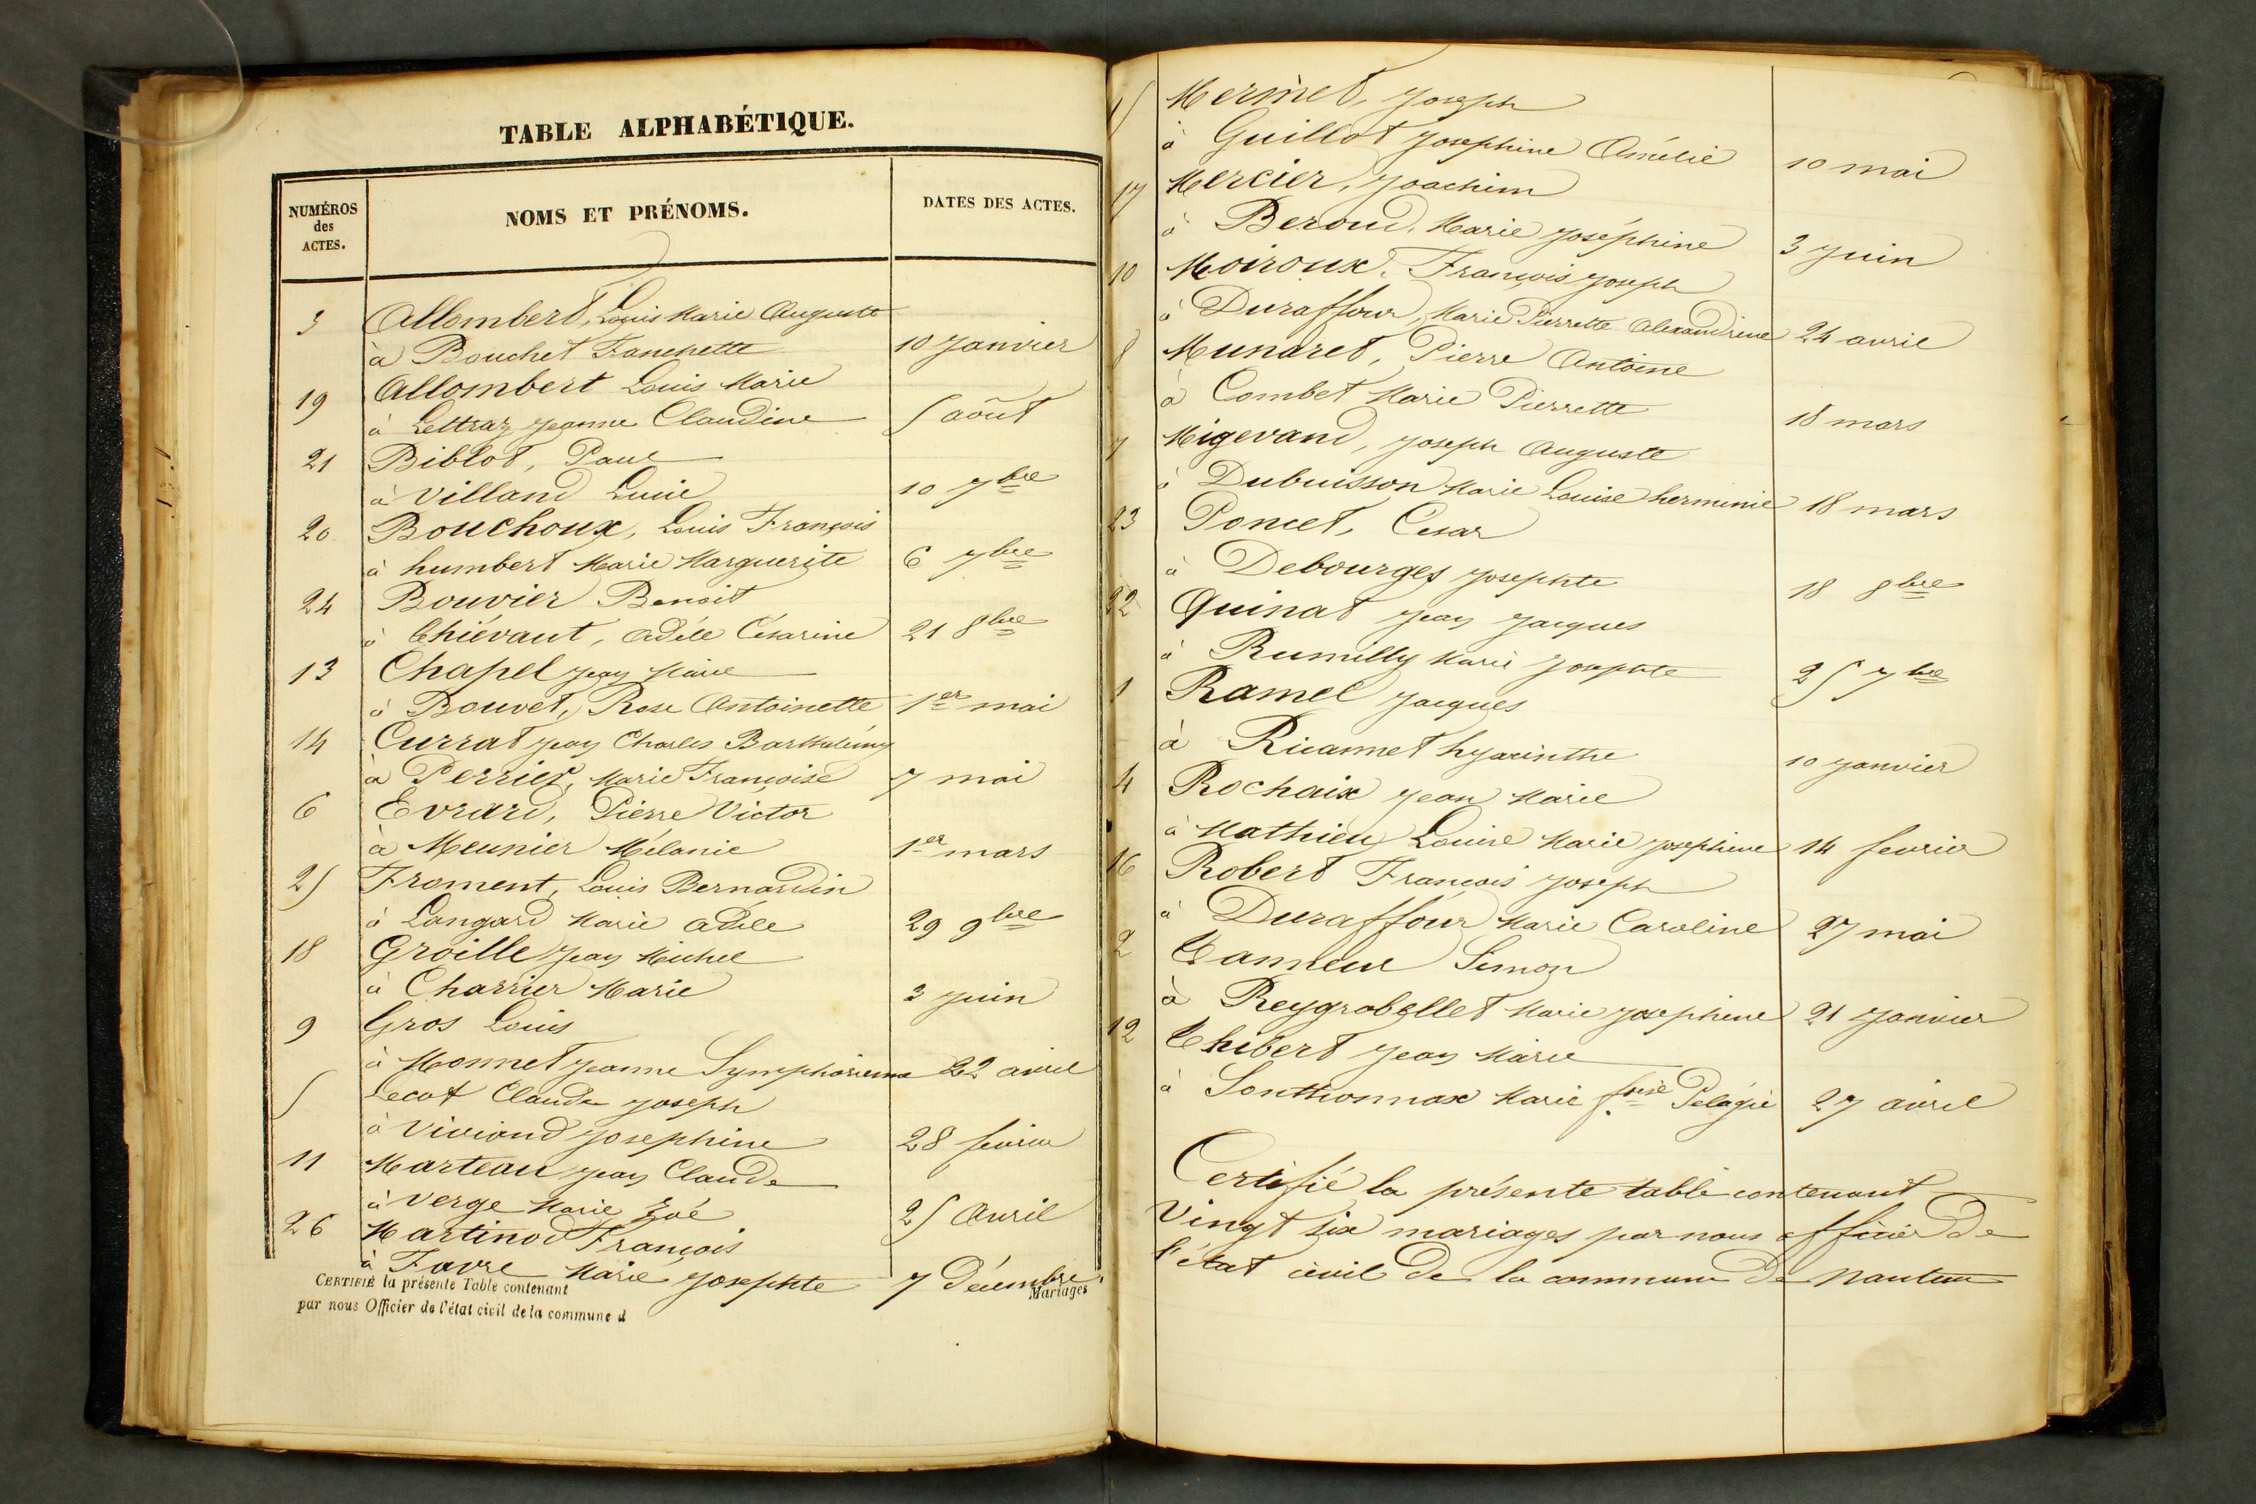 TABLE ALPHABÉTIQUE.
NUMÉROS des ACTES.
NOMS ET PRÉNOMS.
DATES DES ACTES.
3 Allombert, Louis Marie Auguste
à Bouchet Franchette 10 Janvier
19 Allombert Louis Marie
à Lettraz Jeanne Claudine 5 août
21 Biblot, Paul
à Villand Lucie 10 7bre
20 Bouchoux, Louis François
à humbert Marie Marguerite 6 7bre
24 Bouvier Benoit
à Thiévant, Adèle Césarine 21 8bre
13 Chapel Jean Marie
à Bouvet, Rose Antoinette 1er mai
14 Currat Jean Charles Barthélémy
à Perrier, Marie Françoise 7 mai
6 Evrard, Pierre Victor
à Meunier Mélanie 1er mars
25 Froment, Louis Bernardin
à Langard Marie Adèle 29 9bre
18 Groille Jean Michel
à Charrier Marie 3 Juin
9 Gros Louis
à Monnet Jeanne Symphorienne 22 avril
5 Lecot Claude Joseph
à Viviand Josephine 28 fevrier
11 Marteau Jean Claude
à Verge Marie Zoé 25 Avril
26 Martinod François
à Favre Marie Josephte 7 Décembre
CERTIFIÉ la présente Table contenant Mariages
par nous Officier de l'état civil de la commune d
15 Mermet, Joseph
à Guillot Josephine Amélie 10 mai
17 Mercier, Joachim
à Beroud, Marie Joséphine 3 Juin
10 Moiroux, François Joseph
à Duraffour, Marie Pierrette Alexandrine 24 avril
8 Munaret, Pierre Antoine
à Combet Marie Pierrette 18 mars
7 Migevand, Joseph Auguste
à Dubuisson Marie Louise herminie 18 mars
23 Poncet, Cesar
à Debourges Josephte 18 8bre
22 Quinat Jean Jacques
à Rumilly Marie Josephte 25 7bre
1 Ramel Jacques
à Ricannet hyacinthe 10 Janvier
4 Rochaix Jean Marie
à Mathieu Louise Marie Josephine 14 fevrier
16 Robert François Joseph
à Duraffour Marie Caroline 27 mai
2 Tanneur Simon
à Reygrobellet Marie Josephine 21 Janvier
12 Thibert Jean Marie
à Sonthonnax Marie fse Pelagie 27 avril
Certifié la présente table contenant
Vingt six mariages par nous officier de
l'état civil de la commune de Nantua